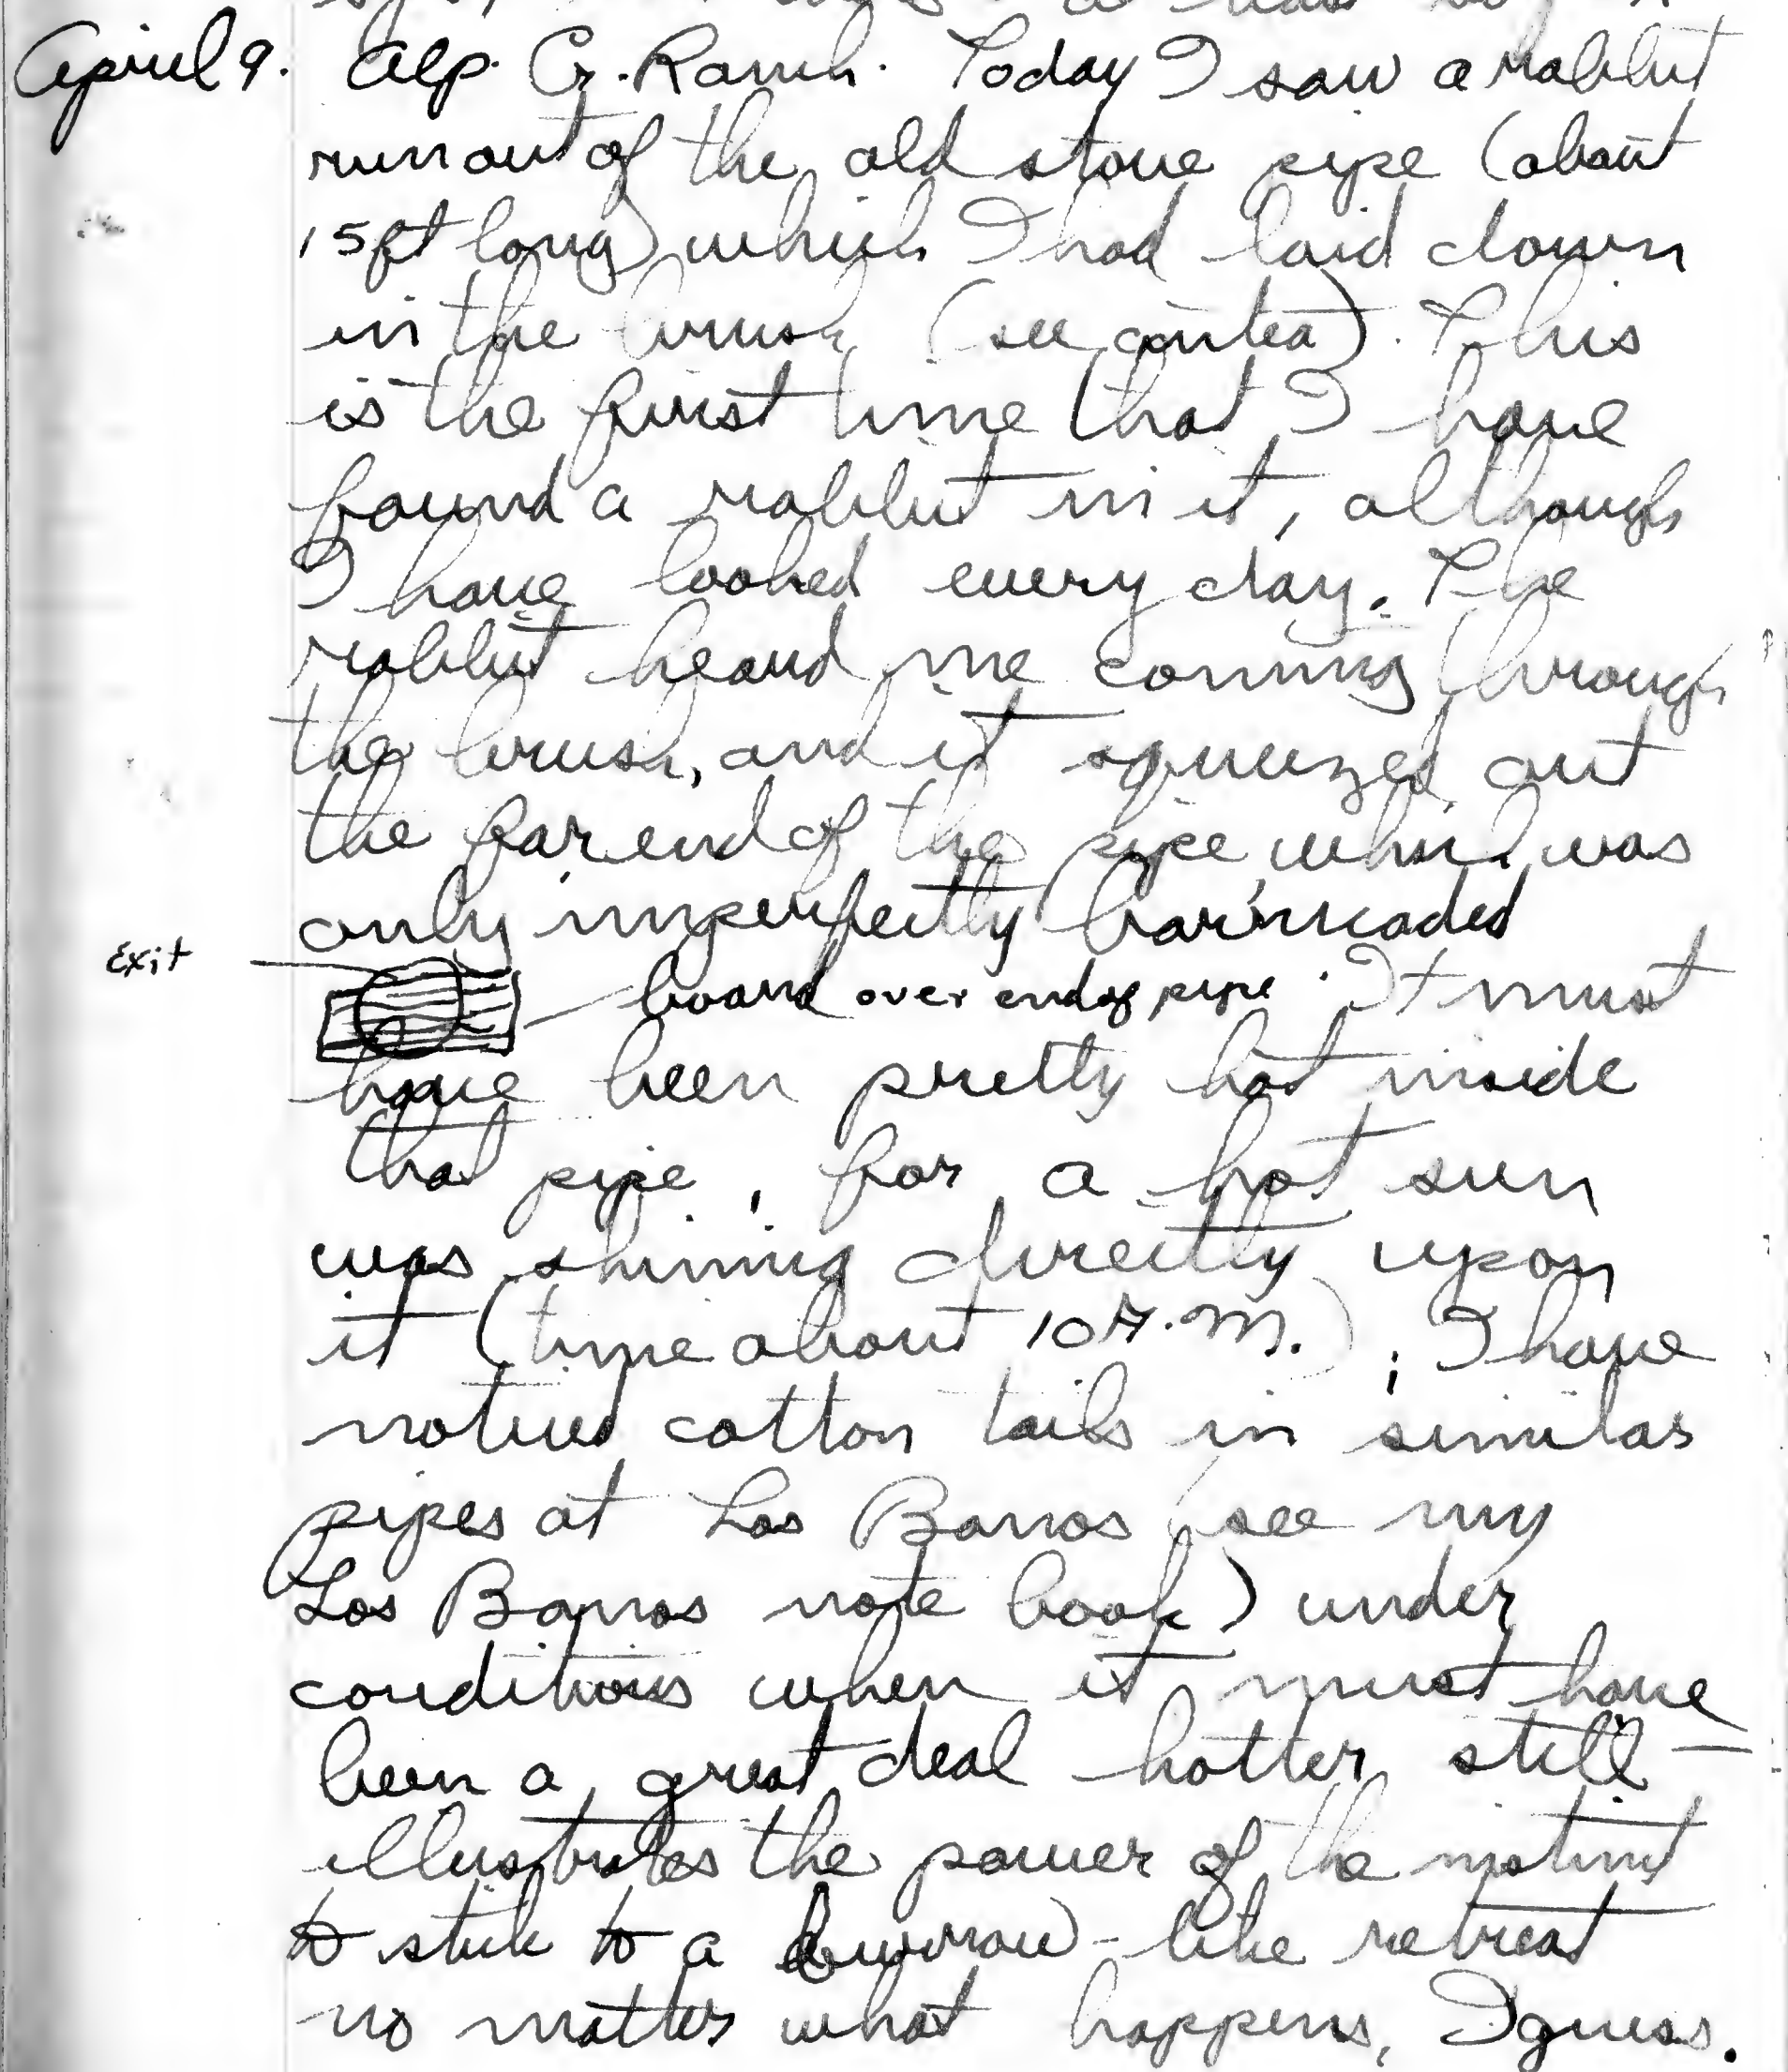 April 9. Alp. Cr. Ranch. Today I saw a rabbit
run out of the old stove pipe (about
15 ft long) which I had laid down
in the brush (see antea). This
is the first time that I have
found a rabbit in it, although
I have looked every day. The
rabbit heard me coming through
the brush, and it squeezed out
the far end of the pipe, which was
only imperfectly barricaded
Exit
board over end of pipe. It must
have been pretty hot inside
that pipe, for a hot sun
was shining directly upon
it (time about 10 A.M.); I have
noticed cotton tails in similar
pipes at Los Banos (see my
Los Banos note book) under
conditions when it must have
been a great deal hotter still —
illustrates the power of the instinct
to stick to a burrow-like retreat
no matter what happens, I guess.